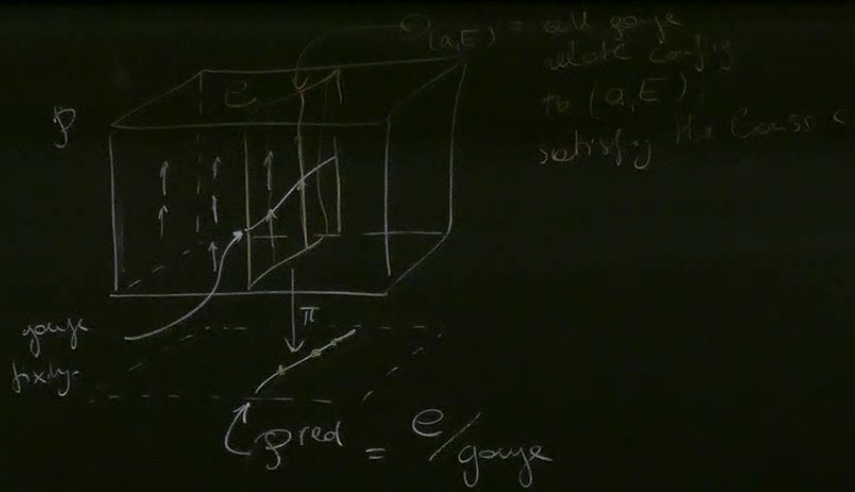 O(a,E) = all gauge
relate config.
to (a,E)
satisfy the Gauss c
P
e
π
gauge
fixing.
P red = e/gauge